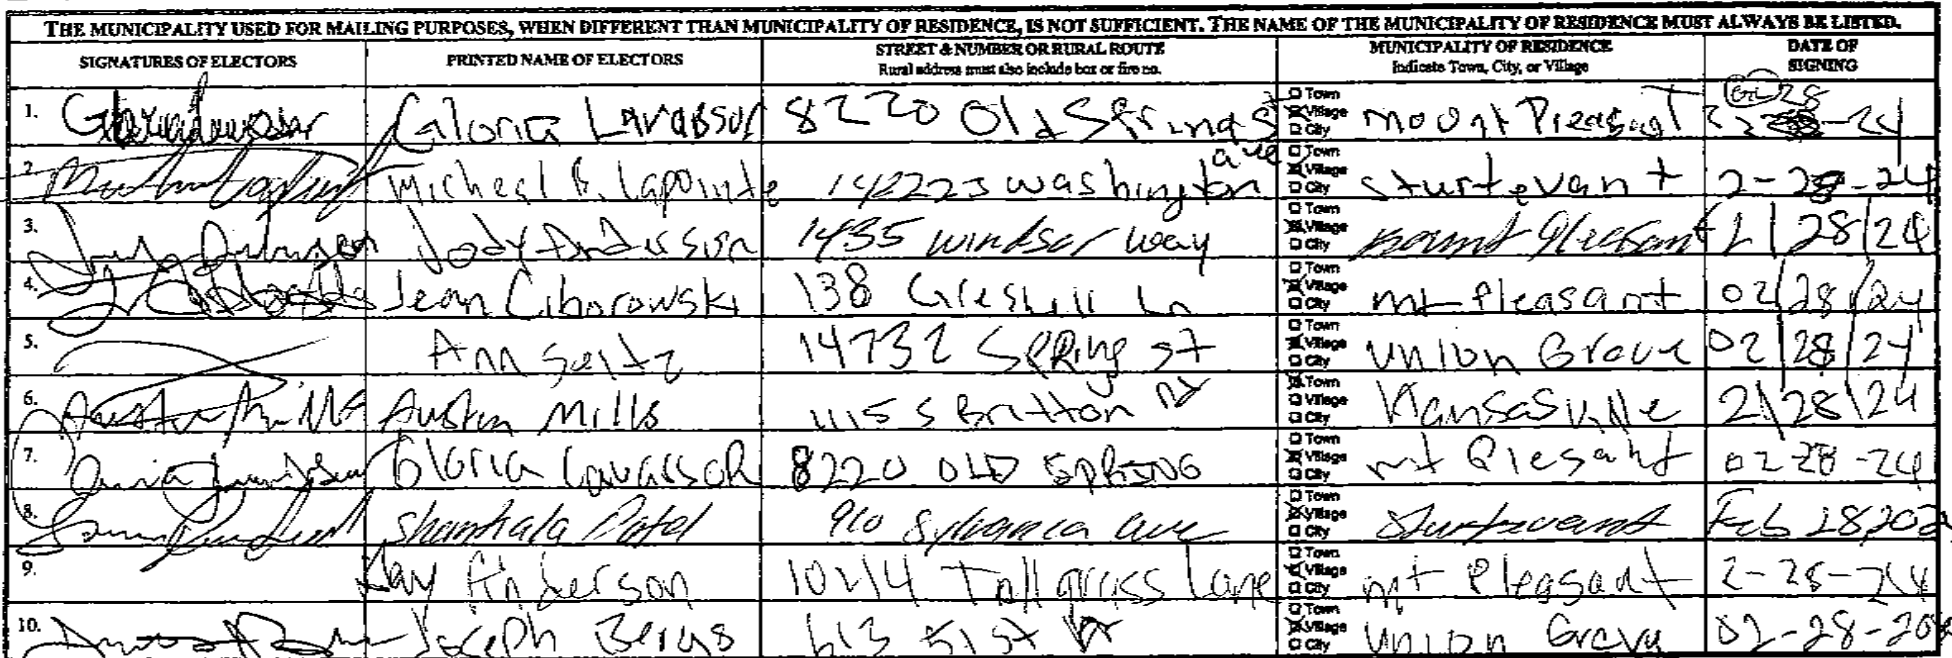 THE MUNICIPALITY USED FOR MAILING PURPOSES, WHEN DIFFERENT THAN MUNICIPALITY OF RESIDENCE, IS NOT SUFFICIENT. THE NAME OF THE MUNICIPALITY OF RESIDENCE MUST ALWAYS BE LISTED.
SIGNATURES OF ELECTORS PRINTED NAME OF ELECTORS STREET & NUMBER OR RURAL ROUTE MUNICIPALITY OF RESIDENCE DATE OF
Rural address must also include box or fire no. Indicate Town, City, or Village SIGNING
1. Gloria 8220 Old Spring Town Village City Mount Pleasant 28 -24
2. Micheal R. Lapointe 142223 Washington ave Town Village City Sturtevant 2-28-24
3. Jody Anderson 1435 Windsor Way Town Village City mount Pleasant 2/28/24
4. Jean Ciborowski 138 Ln Town Village City mt Pleasant 02/28/24
5. Ann Seitz 14732 Spring st Town Village City Union Grove 02/28/24
6. Austin Mills 1115 S Britton Rd Town Village City Kansasville 2/28/24
7. Gloria Lavassor 8220 OLD SPRING Town Village City mt Plesant 02-28-24
8. Patel 910 Sylvania ave Town Village City Sturtevant Feb 28, 202
9. Kay Anderson Tallgrass Lane Town Village City mt Pleasant 2-28-24
10. Joseph Bergs 613 51st Dr Town Village City Union 02-28-20